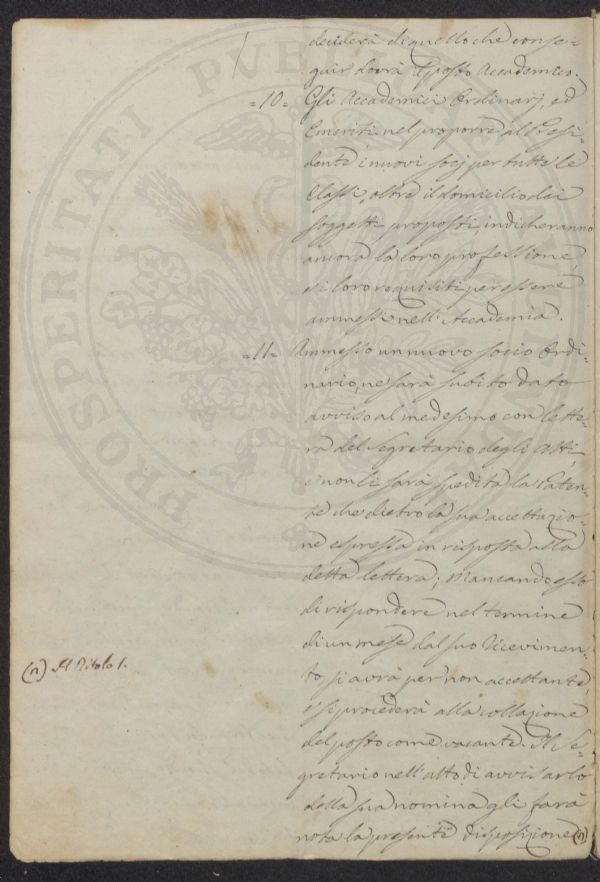 deciderà di quello che conse-
guir dovrà il posto Accademico.
=10= Gli Accademici Ordinarj, ed
Emeriti nel proporre al Presi-
dente i nuovi socj per tutte le
Classi, oltre il domicilio dei
soggetti proposti, indicheranno
ancora la loro professione,
e i loro requisiti per essere
ammessi nell'Accademia.
=11= Ammesso un nuovo socio Ordi-
nario, ne sarà subito dato
avviso al medesimo con lette-
ra del Segretario degli Atti,
e non li sarà spedita la Paten-
te che dietro la sua accettazio-
ne espressa in risposta alla
detta lettera; Mancando esso
di rispondere nel termine
di un mese dal suo ricevimen-
to si avrà per non accettante,
e si procederà alla collazione
del posto come vacante. Il Se-
gretario nell'atto di avvisarlo
della sua nomina gli farà
nota la presente disposizione (n)
(n) Al Titolo 1.
PROSPERITATI PUBLICAE